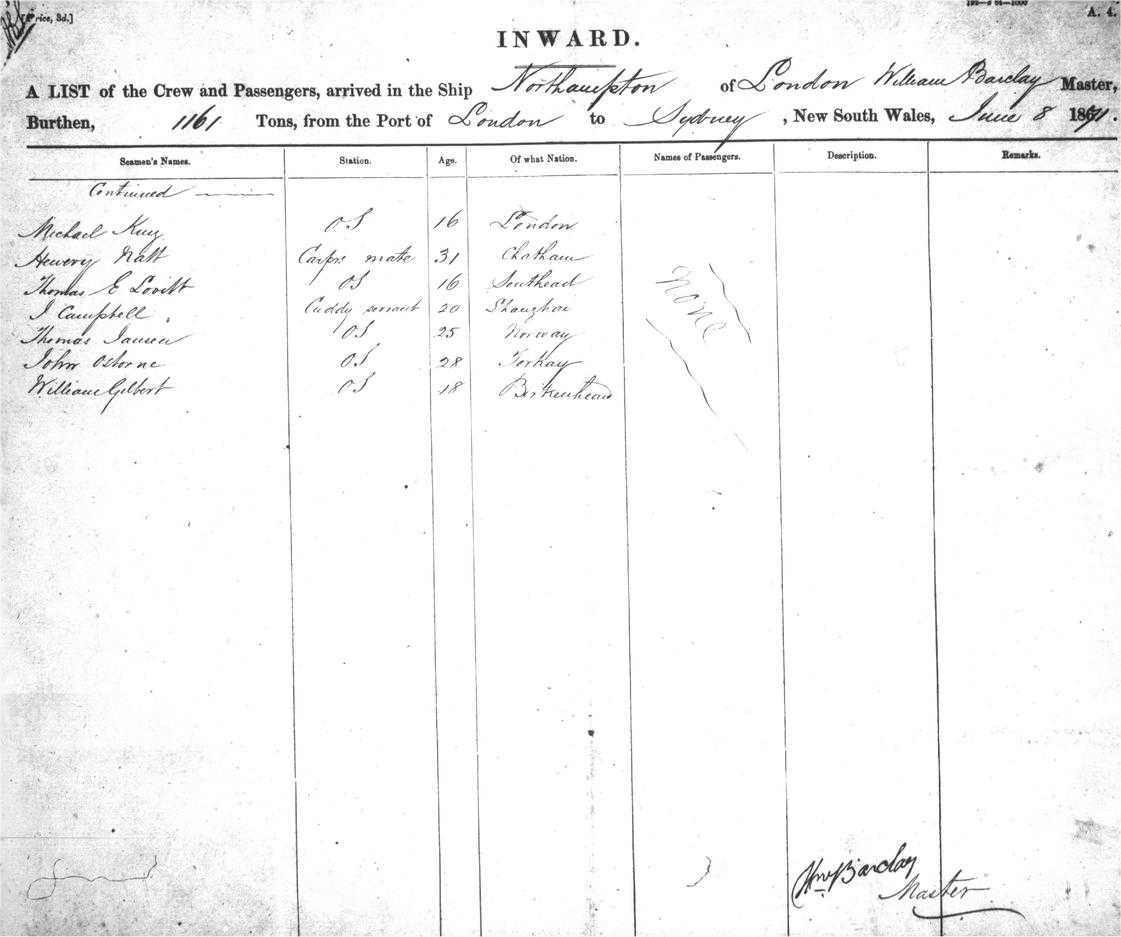 [Price, 3d.]
A. 4.
INWARD.
A LIST of the Crew and Passengers, arrived in the Ship Northampton of London William Barclay Master,
Burthen, 1161 Tons, from the Port of London to Sydney, New South Wales, June 8 1871.
Seamen's Names. Station. Age. Of what Nation. Names of Passengers. Description. Remarks.
Continued
Michael King OS 16 London
Hewery Natt Carprs mate 31 Chatham
Thomas E Lovitt OS 16 Southend
J Campbell Cuddy servant 20
Thomas OS 25 Norway
John Osborne OS 28 Torkay
William Gilbert OS 18 Birkenhead
None
Wm Barclay
Master